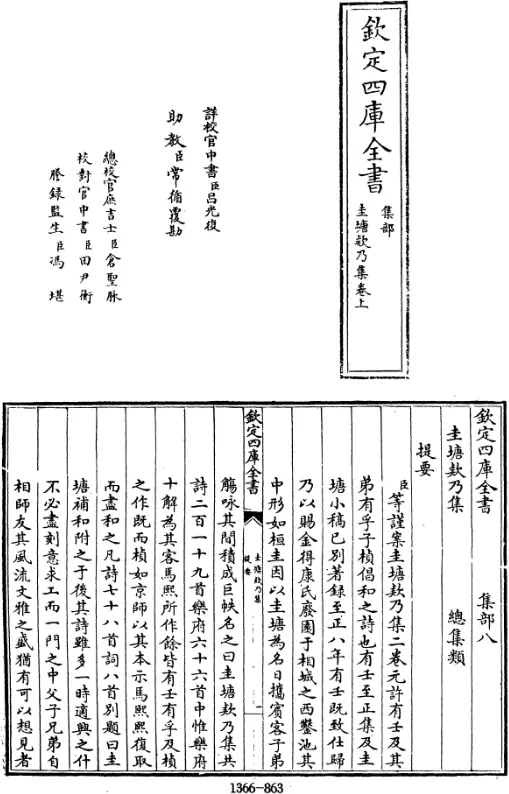 欽定四庫全書
集部
圭塘欸乃集卷上
詳校官中書臣呂光復
助教臣常循覆勘
總校官庶吉士臣倉聖脉
校對官中書臣田尹衡
謄錄監生臣馮堪
欽定四庫全書 集部八
圭塘欵乃集 總集類
提要
臣等謹案圭塘欵乃集二卷元許有壬及其
弟有孚子楨倡和之詩也有壬至正集及圭
塘小稿已別著録至正八年有壬既致仕歸
乃以賜金得康氏廢園于相城之西鑿池其
中形如桓圭因以圭塘為名日攜賓客子弟
欽定四庫全書
圭塘欵乃集
提要
一
觴咏其間積成巨帙名之曰圭塘欵乃集共
詩二百一十九首樂府六十六首中惟樂府
十解為其客馬熙所作餘皆有壬有孚及楨
之作既而楨如京師以其本示馬熙熙復取
而盡和之凡詩七十八首詞八首别題曰圭
塘補和附之于後其詩雖多一時適興之什
不必盡刻意求工而一門之中父子兄弟自
相師友其風流文雅之盛猶有可以想見者
1366-863